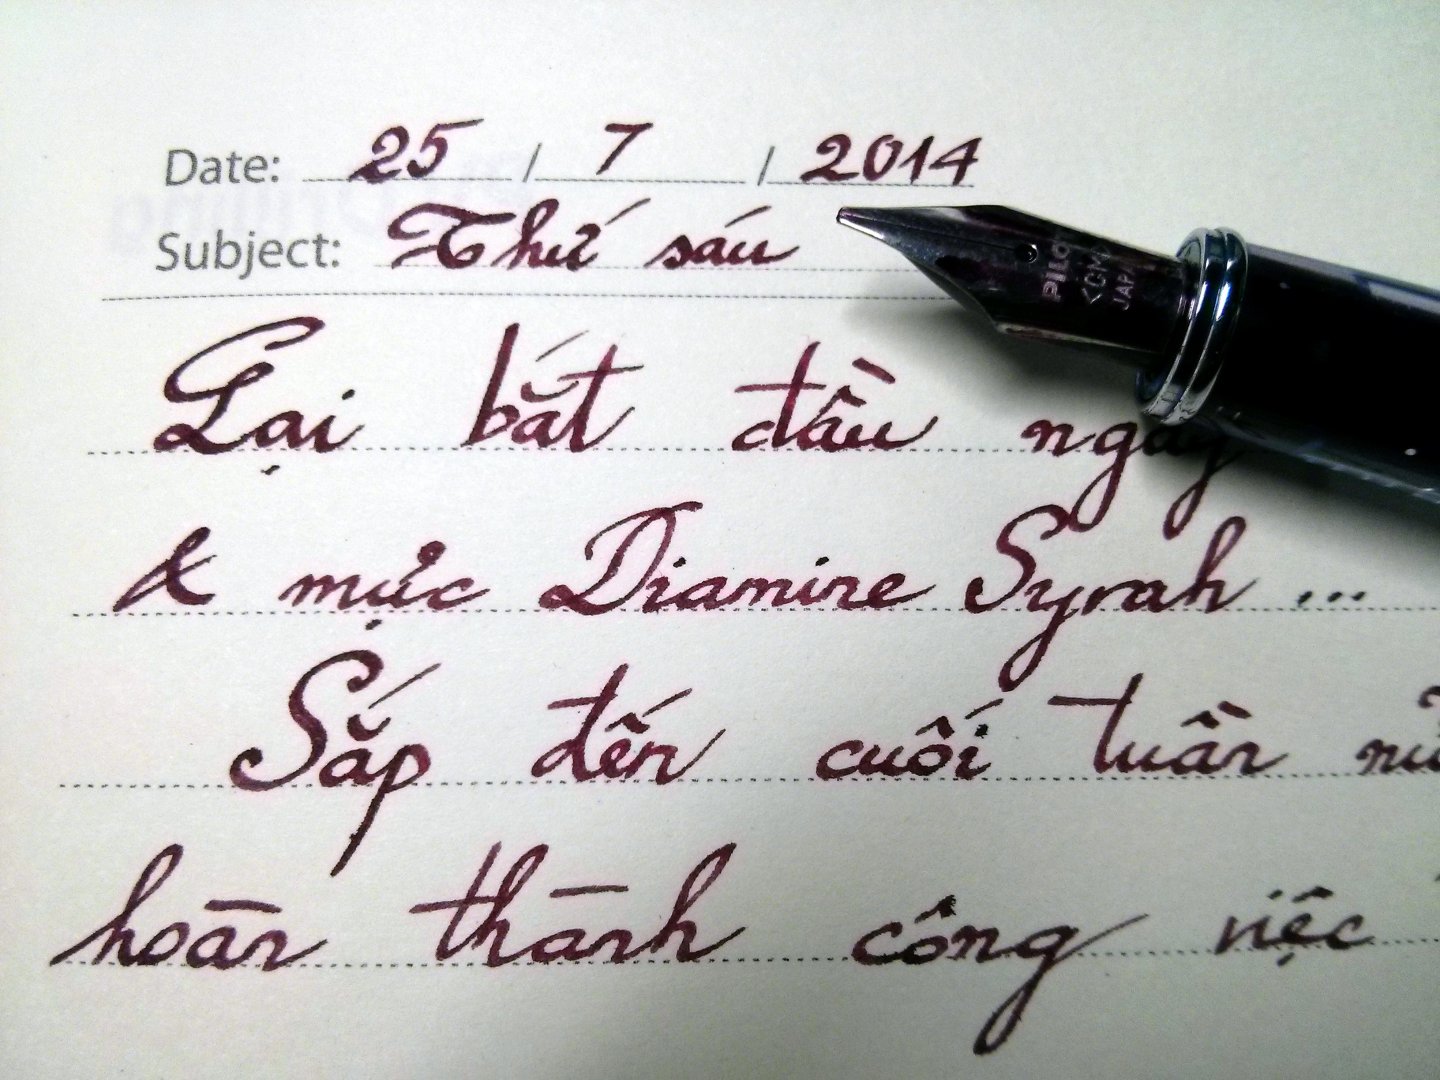 Date: 25 / 7 / 2014
Subject: Thứ sáu
Lại bắt đầu
& mực Diamine Syrah ...
Sắp đến cuối tuần
hoàn thành công việc
PILOT
<CM>
JAPAN